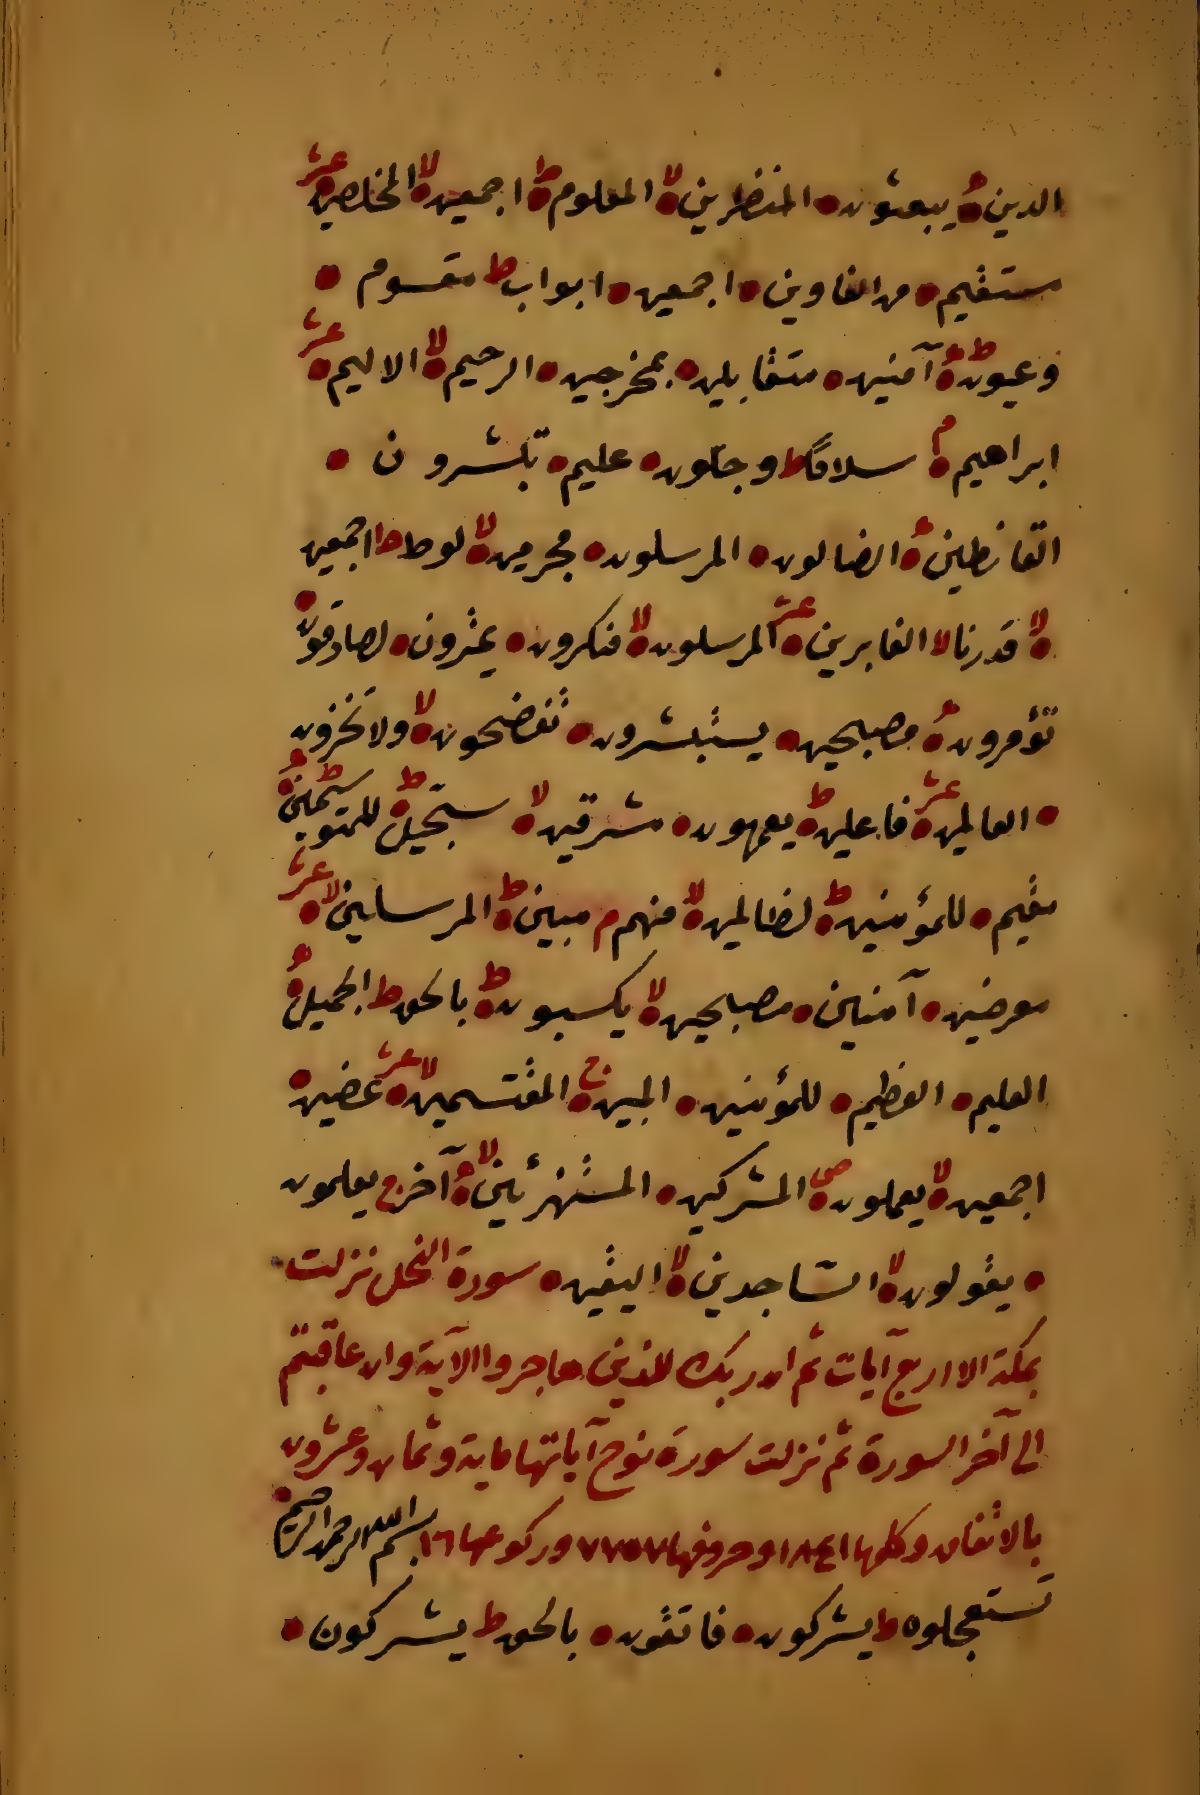 الدين ۵ یبعثون ۵ المنظرين ۵ لا المعلوم ۵ ط اجمعين ۵ لا المخلصين ۵ عشر
مستقيم ۵ من الغاوين ۵ اجمعين ۵ ابواب ط مقسوم ۵
وعيون ۵ ط آمنين ۵ متقابلين ۵ بمخرجين ۵ الرحيم ۵ لا الاليم ۵ عشر
ابراهيم ۵ م سلاما ط وجلون ۵ عليم ۵ تبشرون ۵
القانطين ۵ الضالون ۵ المرسلون ۵ مجرمين ۵ لا لوط ط اجمعين
۵ لا قدرنا لا الغابرين ۵ عشر المرسلون ۵ لا منكرون ۵ يمترون ۵ لصادقون ۵
تؤمرون ۵ مصبحين ۵ يستبشرون ۵ تفضحون ۵ لا ولا تخزون
۵ العالمين ۵ عشر فاعلين ۵ ط يعمهون ۵ مشرقين ۵ لا سجيل ۵ ط للمتوسمين ۵
مقيم ۵ للمؤمنين ۵ ط لظالمين ۵ لا منهم م مبين ۵ ط المرسلين ۵ لا عشر
معرضين ۵ آمنين ۵ مصبحين ۵ لا يكسبون ۵ ط بالحق ط الجميل ۵
العليم ۵ العظيم ۵ للمؤمنين ۵ المبين ۵ ج المقتسمين ۵ لا عشر عضين ۵
اجمعين ۵ لا يعملون ۵ المشركين ۵ المستهزئين ۵ لا آخر ج يعلمون
۵ يقولون ۵ لا الساجدين ۵ لا اليقين ۵ سورة النحل نزلت
بمكة الا اربع آيات ثم ان ربك للذين هاجروا الآية وان عاقبتم
الى آخر السورة ثم نزلت سورة نوح آياتها ماية وثمان وعشرون
بالاتفاق وكلمها ١٨٤١ وحروفها ٧٧٥٧ وركوعها ١٦ بسم الله الرحمن الرحيم ۵
تستعجلوه ط يشركون ۵ فاتقون ۵ بالحق ط يشركون ۵